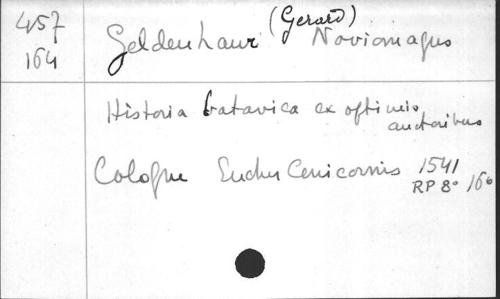 457
164
Geldenhaur (Gerard) Noviomagus
Historia batavica ex optimis
auctoribus
Cologne Eucher Cervicornis 1541
RP 8° 16°